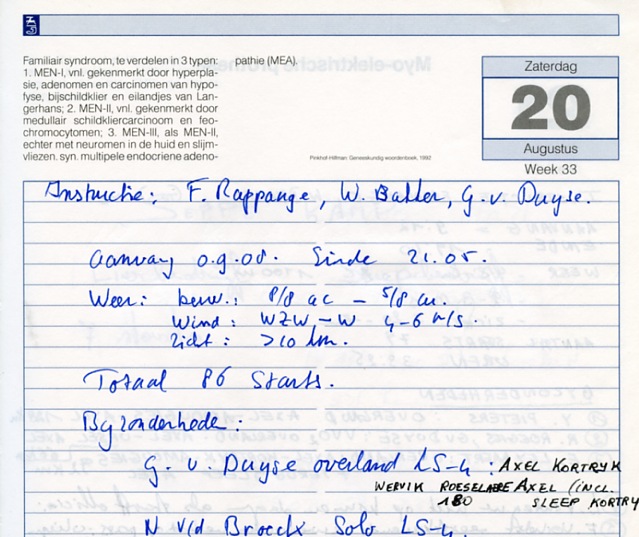 Familiair syndroom, te verdelen in 3 typen:
1. MEN-I, vnl. gekenmerkt door hyperpla-
sie, adenomen en carcinomen van hypo-
fyse, bijschildklier en eilandjes van Lan-
gerhans; 2. MEN-II, vnl. gekenmerkt door
medullair schildkliercarcinoom en feo-
chromocytomen; 3. MEN-III, als MEN-II,
echter met neuromen in de huid en slijm-
vliezen. syn. multipele endocriene adeno-
pathie (MEA).
Pinkhof-Hilfman: Geneeskundig woordenboek, 1992
Zaterdag
20
Augustus
Week 33
Instructie: F. Rappange, W. Bakker, G. v. Duyse.
aanvang 09.08. Einde 21.05.
Weer: bew.: 8/8 ac – 5/8 cu.
Wind: WZW – W 4-6 m/s.
Zicht: >10 km.
Totaal 86 Starts.
Byzonderhede:
G. v. Duyse overland LS-4: AXEL KORTRYK
WERVIK ROESELARE AXEL (INCL.
180 SLEEP KORTRY
N v/d Broeck Solo LS-4.